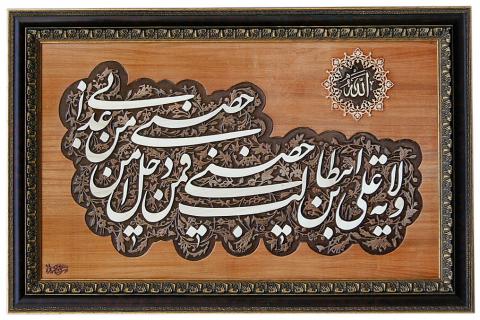 الله
ولایة علی بن ابیطالب
حصنی فمن دخل
حصنی امن من عذابی